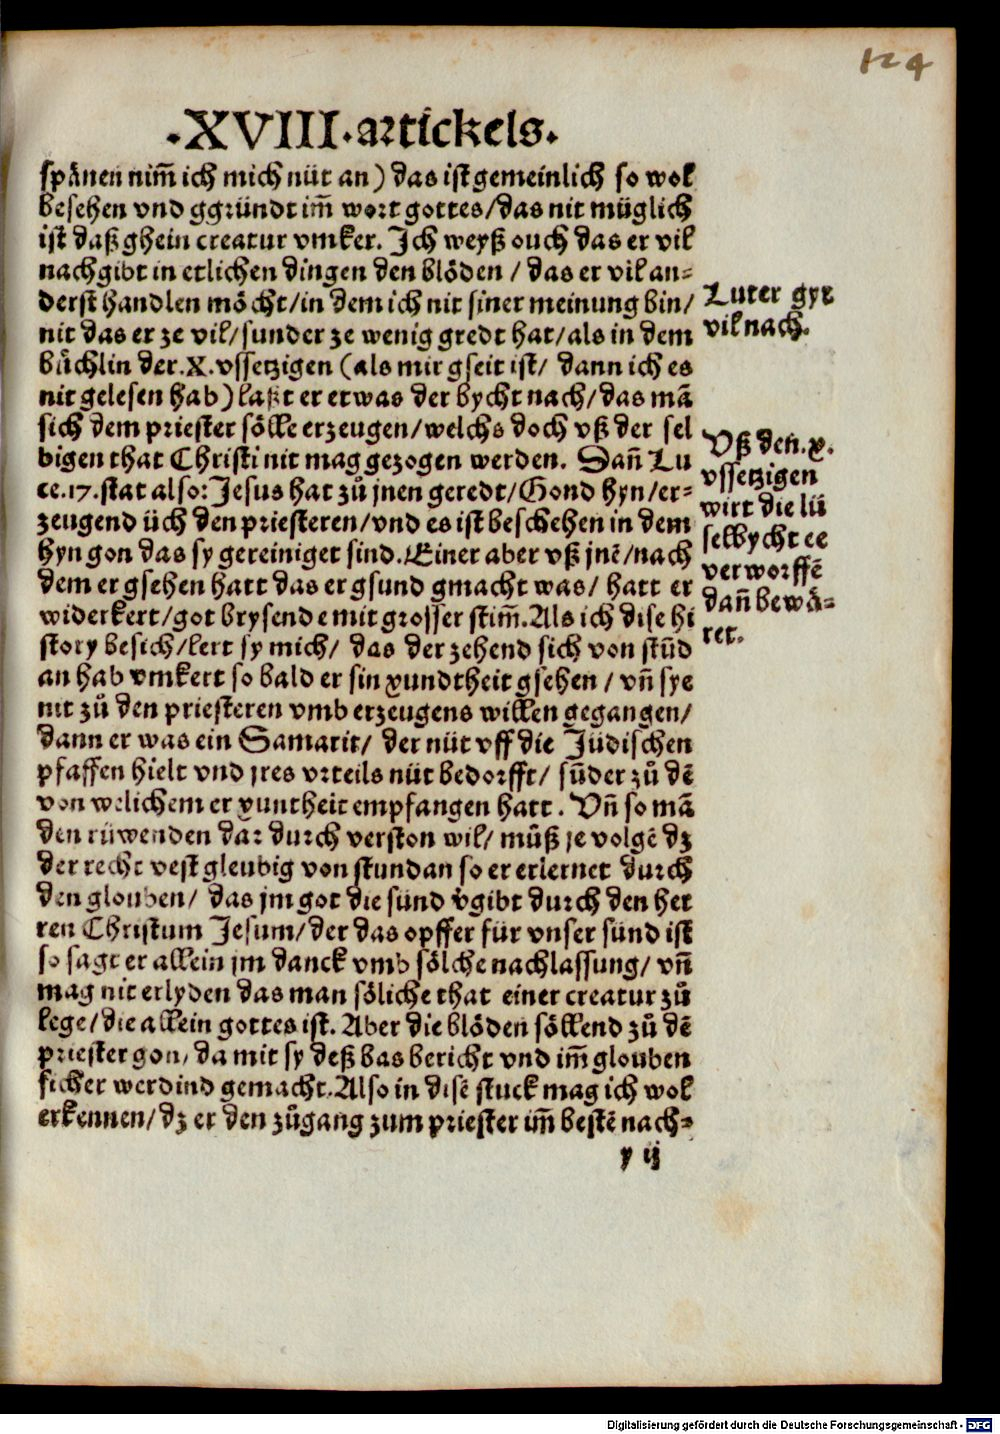 124
.XVIII.artickels.
spånen nim̃ ich mich nüt an) das ist gemeinlich so wol
besehen vnd ggründt im̃ wort gottes/das nit müglich
ist daß ghein creatur vmker. Ich weyß ouch das er vil
nachgibt in etlichen dingen den blöden / das er vil an⸗
derst handlen möcht/in dem ich nit siner meinung bin/
nit das er ze vil/sunder ze wenig gredt hat/als in dem
bůchlin der.X.vssetzigen (als mir gseit ist/ dann ich es
nit gelesen hab) laßt er etwas der bycht nach/das mā
sich dem priester sölle erzeugen/welchs doch vß der sel
bigen that Christi nit mag gezogen werden. Dañ Lu
ce.17.stat also: Jesus hat zů jnen geredt/Gond hyn/er⸗
zeugend üch den priesteren/vnd es ist beschehen in dem
hyn gon das sy gereiniget sind.Einer aber vß jnē/nach
dem er gsehen hatt das er gsund gmacht was/ hatt er
widerkert/got brysende mit grosser stim̃.Als ich dise hi
story besich/lert sy mich/ das der zehend sich von stūd
an hab vmkert so bald er sin xundtheit gsehen / vñ sye
nit zů den priesteren vmb erzeugens willen gegangen/
dann er was ein Samarit/ der nüt vff die Jüdischen
pfaffen hielt vnd jres vrteils nüt bedorfft/ sūder zů dē
von welichem er xuntheit empfangen hatt . Vñ so mā
den rüwenden dar durch verston wil/ můß je volgē dz
der recht vest gleubig von stundan so er erlernet durch
den glouben/ das jm got die sünd v̊gibt durch den her
ren Christum Jesum/der das opffer für vnser sünd ist
so sagt er allein jm danck vmb sölche nachlassung/ vñ
mag nit erlyden das man söliche that einer creatur zů
lege/die allein gottes ist. Aber die blöden söllend zů dē
priester gon/da mit sy deß bas bericht vnd im̃ glouben
sicher werdind gemacht.Also in disē stuck mag ich wol
erkennen/dz er den zůgang zum priester im̃ bestē nach⸗
y ij
Luter gyt
vil nach.
Vß den.x.
vssetzigen
wirt die lü
selbycht ee
verworffē
dañ bewå⸗
ret.
Digitalisierung gefördert durch die Deutsche Forschungsgemeinschaft - DFG